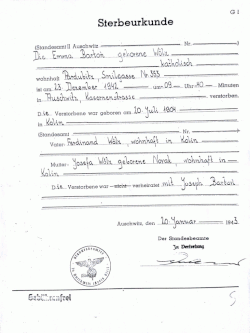 G 1
Sterbeurkunde
(Standesamt II Auschwitz Nr.
Die Emma Bartoň geborene Wölz
katholisch
wohnhaft Pardubitz, Smilgasse Nr. 333
ist am 13 Dezember 1942 um 09 Uhr 40 Minuten
in Auschwitz, Kasernenstrasse verstorben.
D ie Verstorbene war geboren am 20 Juli 1904
in Kolin
(Standesamt Nr.
Vater: Ferdinand Wölz, wohnhaft in Kolin
Mutter: Josefa Wölz geborene Novak, wohnhaft in
Kolin
D ie Verstorbene war nicht verheiratet mit Joseph Bartoň
Auschwitz, den 20 Januar 1943
Der Standesbeamte
In Vertretung
Gebührenfrei